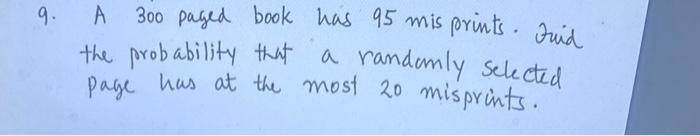 9. A 300 paged book has 95 mis prints. Find
the probability that a randomly selected
page has at the most 20 misprints.